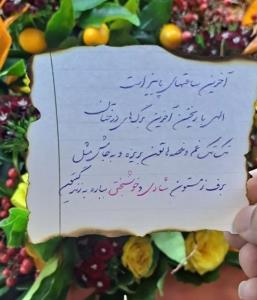 آخرین ساعتهای پاییز است
الهی با ریختن آخرین برگهای درختان
تک تک غم و غصه هاتون بریزه و به جاش مثل
برف زمستون شادی و خوشبختی بباره به زندگیتون